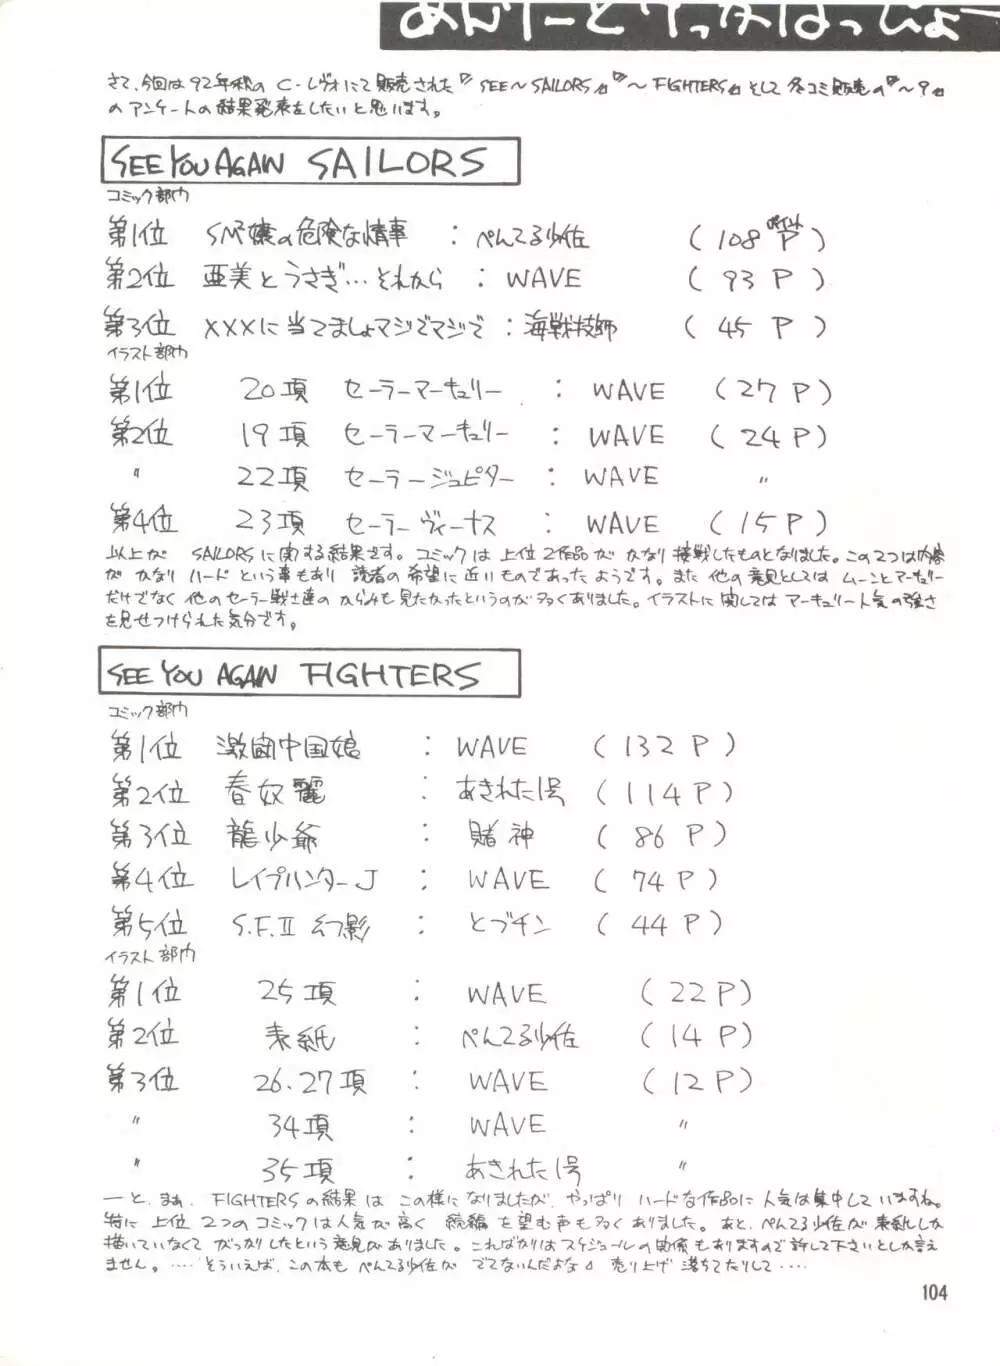 あんけーとけっかはっぴょー
さて、今回は92年秋の C・レヴォにて販売された『SEE～SAILORS』『～FIGHTERS』そして冬コミ販売の『～9』
のアンケートの結果発表をしたいと思います。
SEE YOU AGAIN SAILORS
コミック部門
第1位 SM嬢の危険な情事 : ぺんてる少佐 (108ポイントP)
第2位 亜美とうさぎ…それから : WAVE (93P)
第3位 XXXに当てましょマジでマジで : 海戦技師 (45P)
イラスト部門
第1位 20項 セーラーマーキュリー : WAVE (27P)
第2位 19項 セーラーマーキュリー : WAVE (24P)
〃 22項 セーラージュピター : WAVE 〃
第4位 23項 セーラーヴィーナス : WAVE (15P)
以上が SAILORSに関する結果です。コミックは上位2作品が かなり接戦したものとなりました。この2つは内容
が かなり ハード という事もあり 読者の希望に近いものであったようです。また 他の意見としては ムーンとマーキュリー
だけでなく 他のセーラー戦士達の からみも見たかったというのが多くありました。イラストに関しては マーキュリー人気の強さ
を見せつけられた気分です。
SEE YOU AGAIN FIGHTERS
コミック部門
第1位 激闘中国娘 : WAVE (132P)
第2位 春奴麗 : あきれた1号 (114P)
第3位 龍少爺 : 賭神 (86P)
第4位 レイプハンターJ : WAVE (74P)
第5位 S.F.II 幻影 : とブチン (44P)
イラスト部門
第1位 25項 : WAVE (22P)
第2位 表紙 : ぺんてる少佐 (14P)
第3位 26.27項 : WAVE (12P)
〃 34項 : WAVE 〃
〃 35項 : あきれた1号 〃
ーと、まぁ、FIGHTERSの結果は この様になりましたが、やっぱり ハードな作品に 人気は集中して いますね。
特に 上位 2つのコミックは人気が高く 続編 を望む声も多く ありました。あと、ぺんてる少佐が 表紙しか
描いていなくて がっかりしたという意見がありました。こればかりはスケジュールの関係もありますので許して下さいとしか言え
ません。‥‥そういえば、この本も ぺんてる少佐が でてないんだよな。売り上げ 落ちてたりして‥‥
104